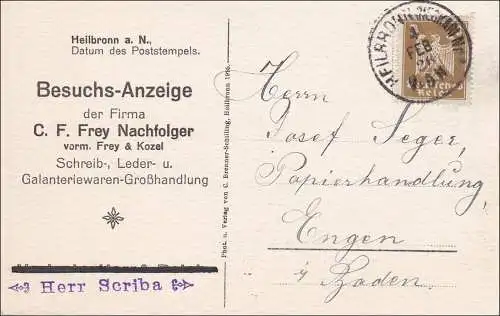 Heilbronn a. N.,
Datum des Poststempels.
Besuchs-Anzeige
der Firma
C. F. Frey Nachfolger
vorm. Frey & Kozel
Schreib-, Leder- u.
Galanteriewaren-Großhandlung
Herr Scriba
Phot. u. Verlag von C. Brenner-Schilling, Heilbronn
HEILBRONN
FEB
Herrn
Josef Seger,
Papierhandlung
Engen
Baden.